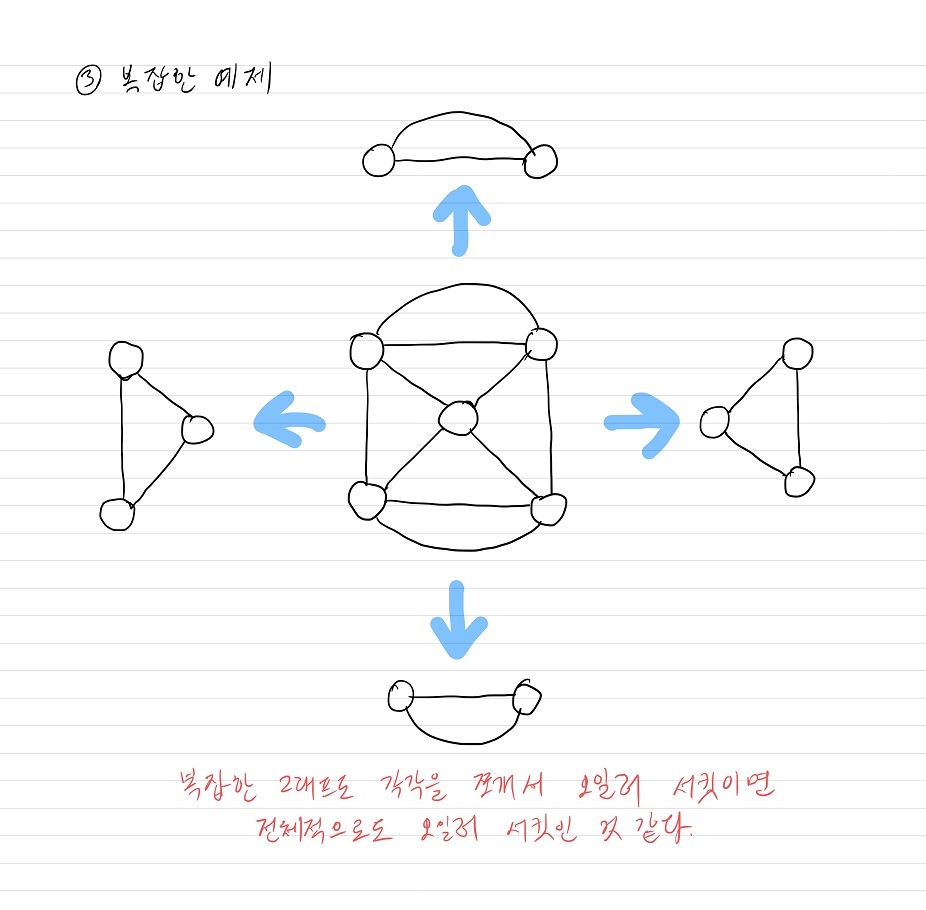 ③ 복잡한 예제
복잡한 그래프도 각각을 쪼개서 오일러 서킷이면
전체적으로도 오일러 서킷인 것 같다.